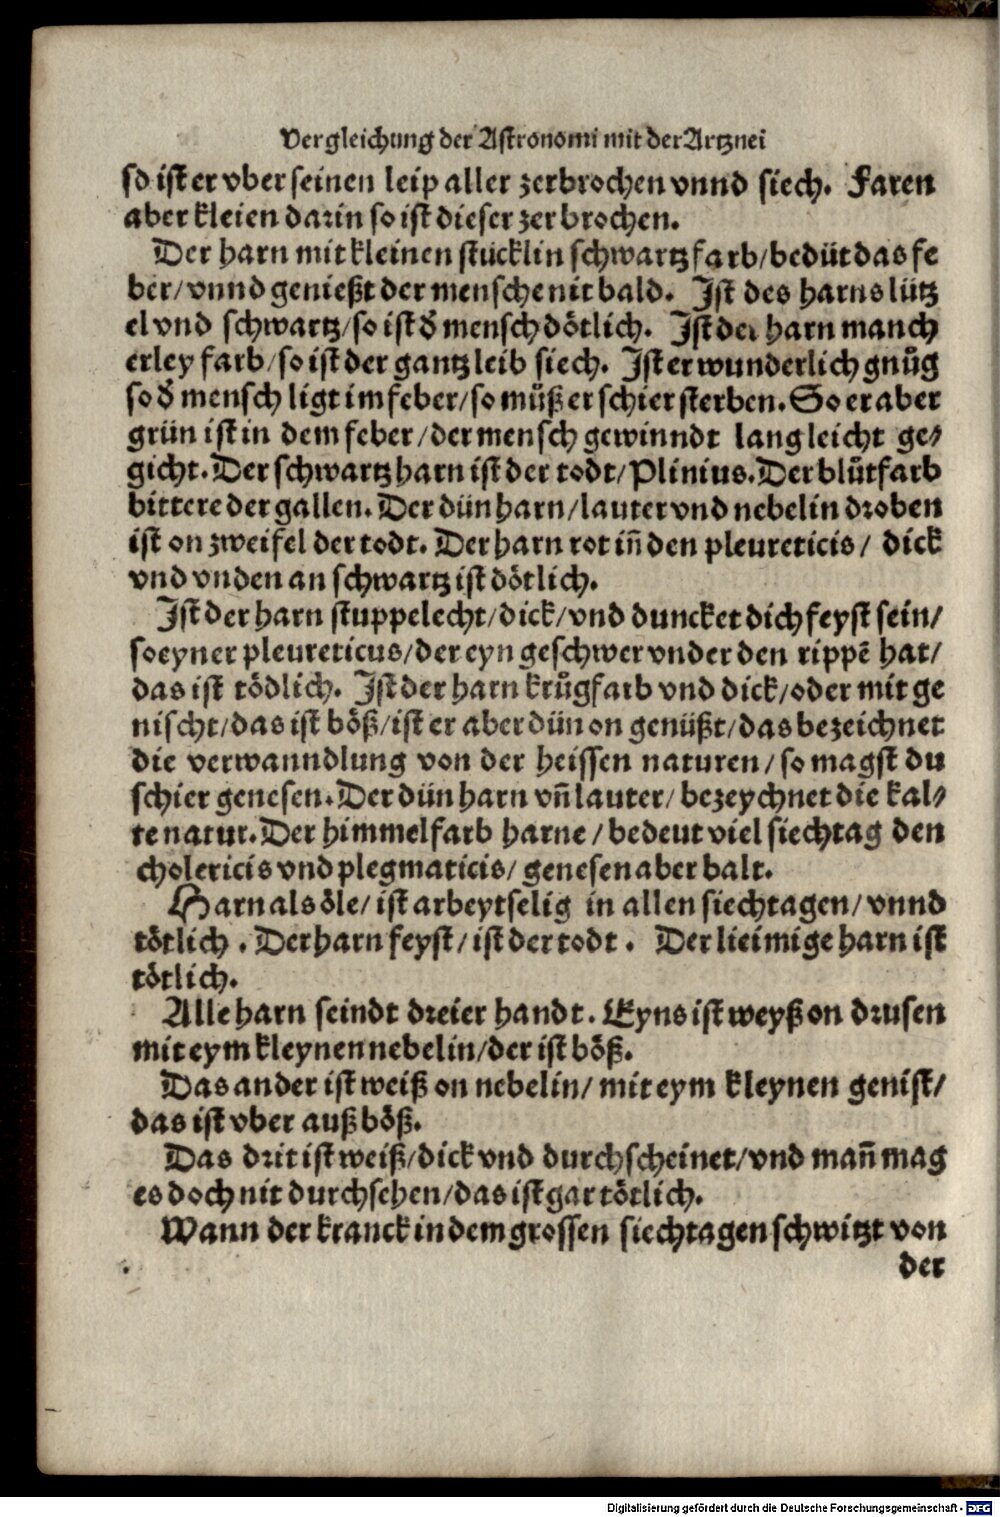 Vergleichung der Astronomi mit der Artznei
so ist er vber seinen leip aller zerbrochen vnnd siech. Faren
aber kleien darin so ist dieser zerbrochen.
Der harn mit kleinen stücklin schwartzfarb/bedüt das fe
ber/vnnd genießt der mensche nit bald. Ist des harns lütz
el vnd schwartz/so ist d̛ mensch dötlich. Ist der harn manch
erley farb/so ist der gantz leib siech. Ist er wunderlich gnůg
so d̛ mensch ligt im feber/so můß er schier sterben. So er aber
grün ist in dem feber/der mensch gewinndt lang leicht ge⸗
gicht. Der schwartz harn ist der todt/Plinius. Der blůtfarb
bittere der gallen. Der dün harn/lauter vnd nebelin droben
ist on zweifel der todt. Der harn rot iñ den pleureticis/ dick
vnd vnden an schwartz ist dötlich.
Ist der harn stuppelecht/dick/vnd duncket dich feyst sein/
so eyner pleureticus/der eyn geschwer vnder den rippẽ hat/
das ist tödlich. Ist der harn krůgfarb vnd dick/oder mit ge
nischt/das ist böß/ist er aber dün on genüßt/das bezeichnet
die verwanndlung von der heissen naturen/so magst du
schier genesen. Der dün harn vñ lauter/bezeychnet die kal⸗
te natur. Der himmelfarb harne/bedeut viel siechtag den
cholericis vnd plegmaticis/genesen aber balt.
Harn als öle/ist arbeytselig in allen siechtagen/vnnd
tötlich. Der harn feyst/ist der todt. Der lieimige harn ist
tötlich.
Alle harn seindt dreier handt. Eyns ist weyß on drusen
mit eym kleynen nebelin/der ist böß.
Das ander ist weiß on nebelin/mit eym kleynen genist/
das ist vber auß böß.
Das drit ist weiß/dick vnd durchscheinet/vnd mañ mag
es doch nit durchsehen/das ist gar tötlich.
Wann der kranck in dem grossen siechtagen schwitzt von
der
Digitalisierung gefördert durch die Deutsche Forschungsgemeinschaft - DFG